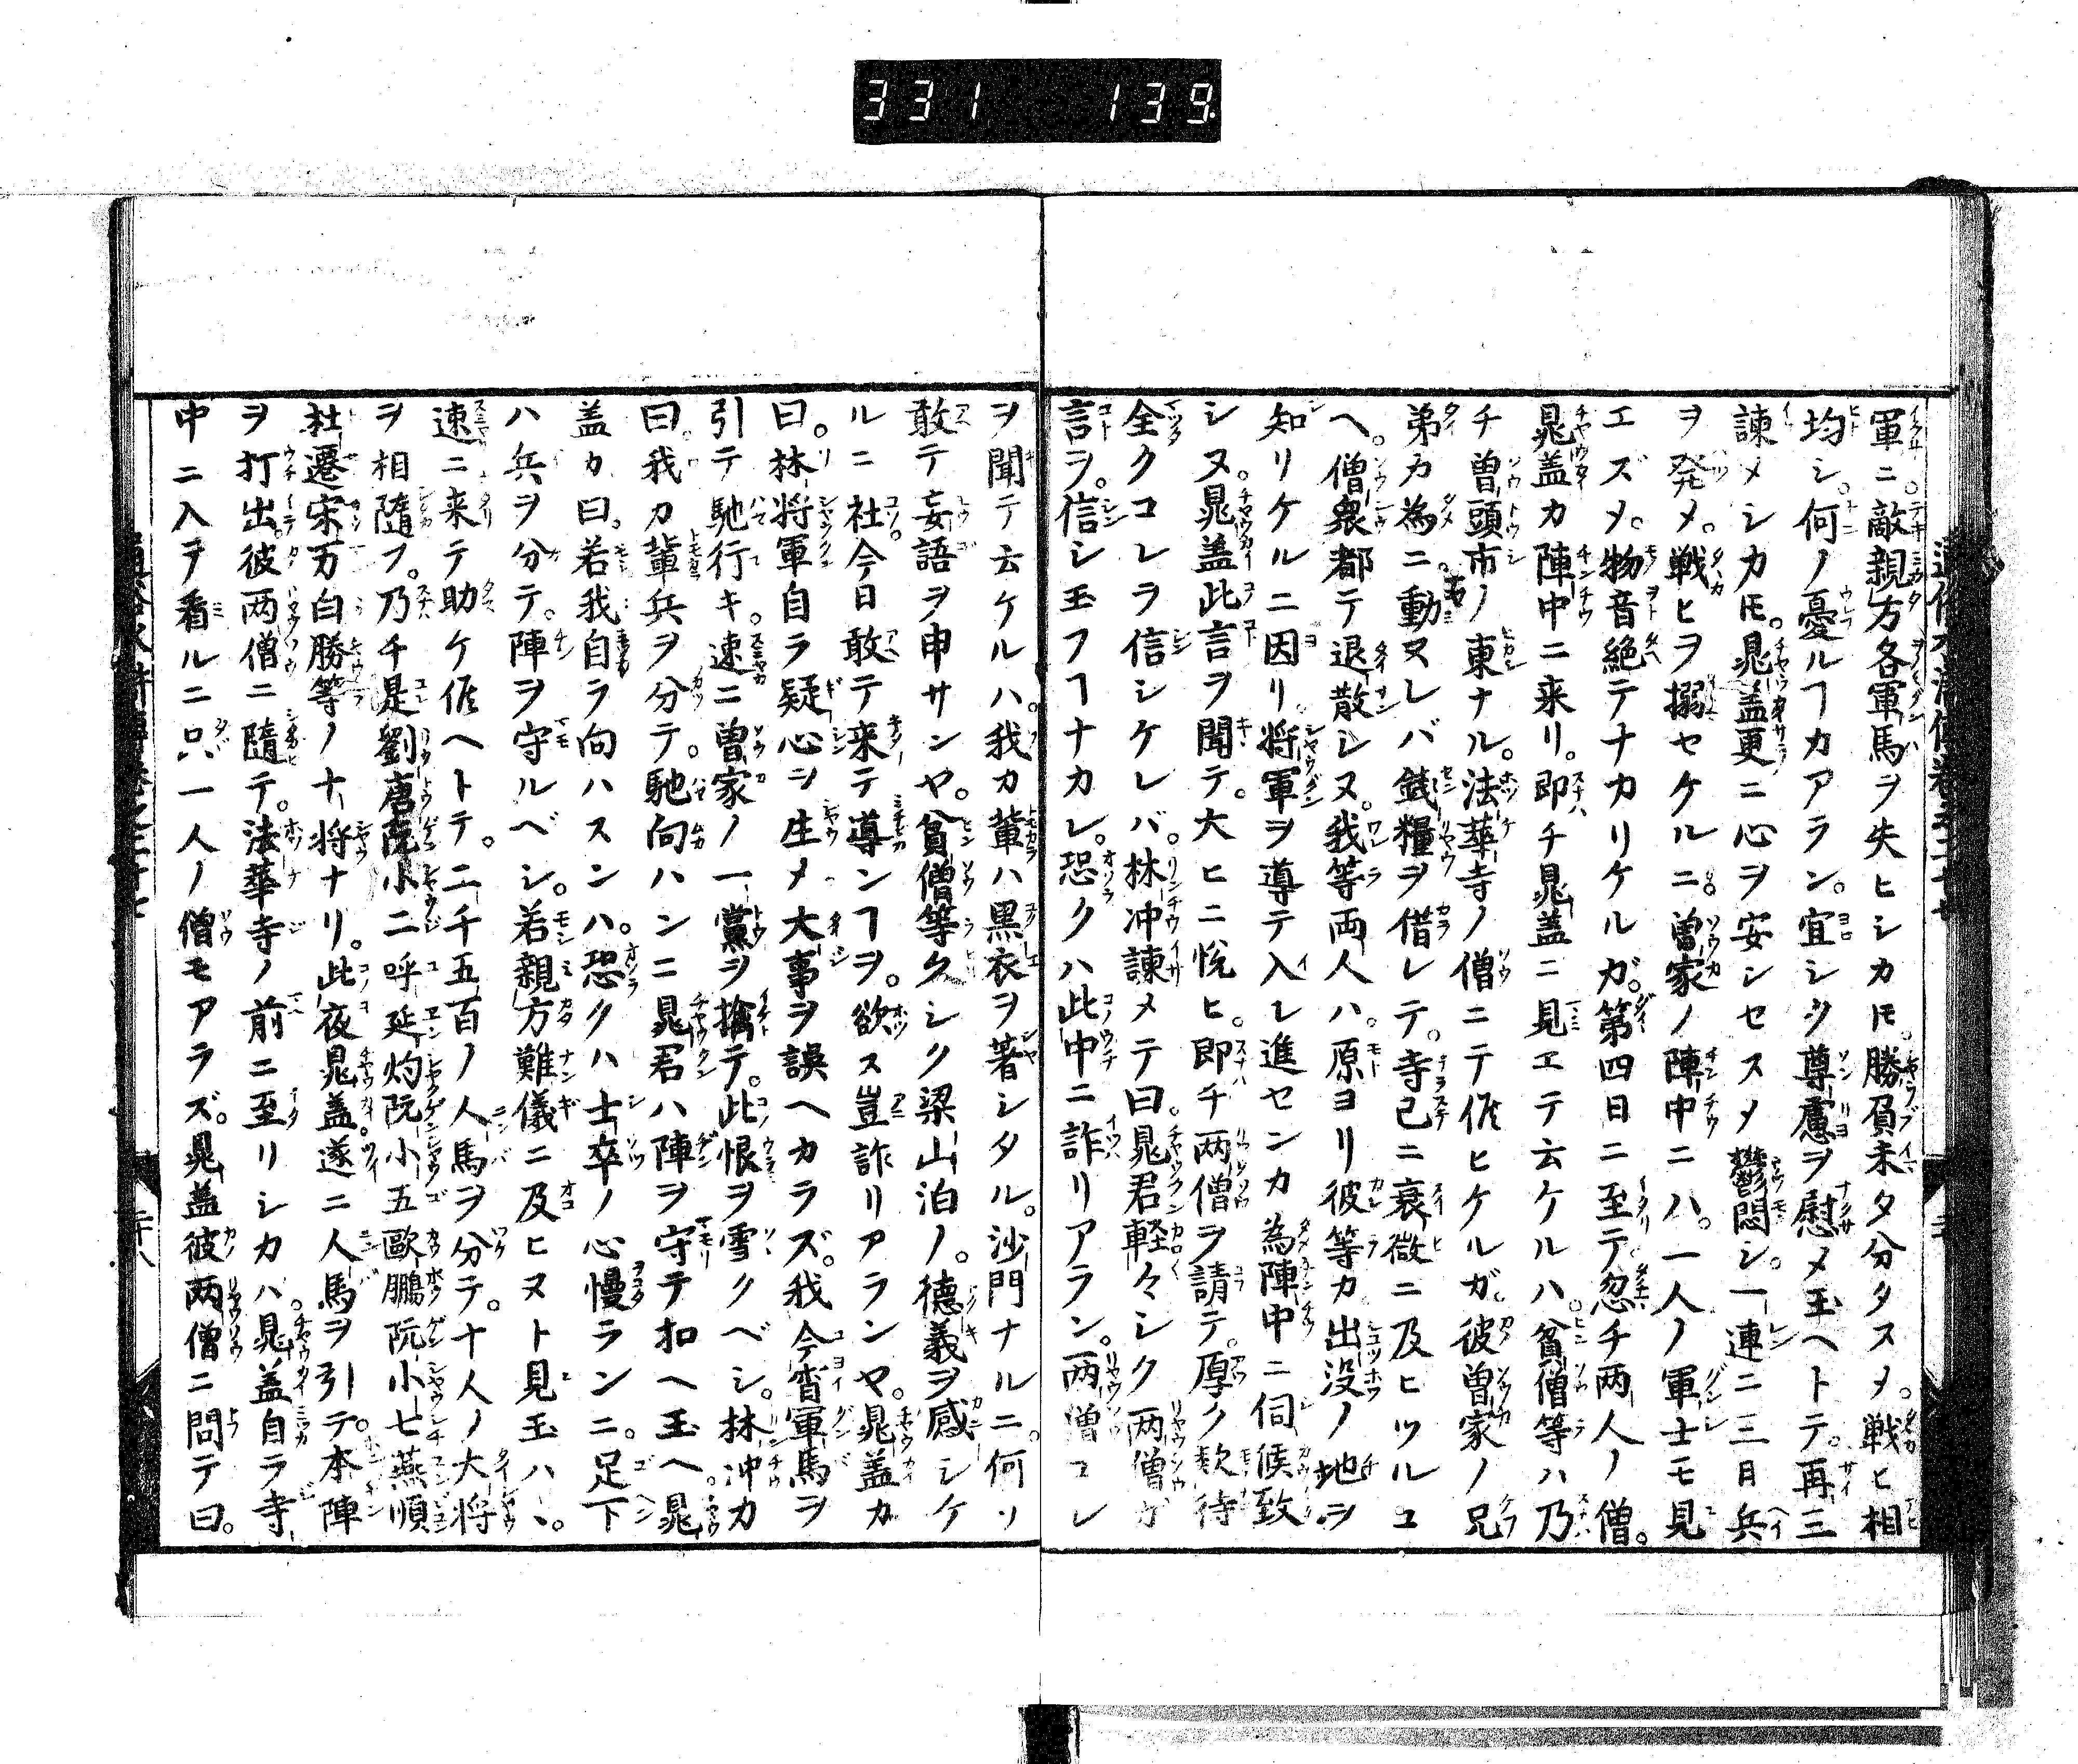 331 139
軍ニ。敵親方各軍馬ヲ失ヒシカ𪜈。勝負未タ分タスメ。戦ヒ相
均シ。何ノ憂ルヿカアラン。宜シク尊慮ヲ慰メ玉ヘトテ。再三
諫メシカ𪜈。晁盖更ニ心ヲ安ンセスメ鬱悶シ。一連ニ三日兵
ヲ発メ。戦ヒヲ搦セケルニ。曽家ノ陣中ニハ。一人ノ軍士モ見
エズメ。物音絶テナカリケルガ。第四日ニ至テ忽チ两人ノ僧。
晁盖カ陣中ニ来リ。即チ晁盖ニ見エテ云ケルハ。貧僧等ハ乃
チ曽頭市ノ東ナル。法華寺ノ僧ニテ候ヒケルガ。彼曽家ノ兄
弟カ為ニ。動ヌレバ銭糧ヲ借レテ。寺已ニ衰微ニ及ヒツルユ
ヘ。僧衆都テ退散シヌ。我等両人ハ。原ヨリ彼等カ出没ノ地ヲ
知リケルニ因リ。将軍ヲ導テ入レ進センカ為陣中ニ伺候致
シヌ。晁盖此言ヲ聞テ。大ヒニ悅ヒ。即チ两僧ヲ請テ。厚ク欵待
全クコレラ信シケレバ。林冲諫メテ曰。晁君軽々シク两僧ガ
言ヲ。信シ玉フヿナカレ。恐クハ此中ニ詐リアラン。两僧コレ
ヲ聞テ云ケルハ。我カ輩ハ黒衣ヲ著シタル。沙門ナルニ。何ソ
敢テ妄語ヲ申サンヤ。貧僧等久シク梁山泊ノ。德義ヲ感シケ
ルニ社。今日敢テ来テ導ンヿヲ。欲ス豈詐リアランヤ。晁盖カ
曰。林将軍自ラ疑心ヲ生メ大事ヲ誤ヘカラズ。我今宵軍馬ヲ
引テ馳行キ。速ニ曽家ノ一黨ヲ擒テ。此恨ヲ雪クベシ。林冲カ
曰我カ輩兵ヲ分テ。馳向ハンニ晁君ハ陣ヲ守テ扣ヘ玉ヘ。晁
盖カ曰。若我自ラ向ハスンハ。恐クハ士卒ノ心慢ランニ。足下
ハ兵ヲ分テ。陣ヲ守ルベシ。若親方難儀ニ及ヒヌト見玉ハヽ。
速ニ来テ助ケ候ヘトテ。二千五百ノ人馬ヲ分テ。十人ノ大将
ヲ相隨フ。乃チ是劉唐阮小二呼延灼阮小五歐鵬阮小七燕順
杜遷宋万白勝等ノ十将ナリ。此夜晁盖。遂ニ人馬ヲ引テ。本陣
ヲ打出。彼两僧ニ隨テ。法華寺ノ前ニ至リシカハ。晁盖自ラ寺
中ニ入ヲ看ルニ只一人ノ僧モアラズ。晁盖彼两僧ニ問テ曰。